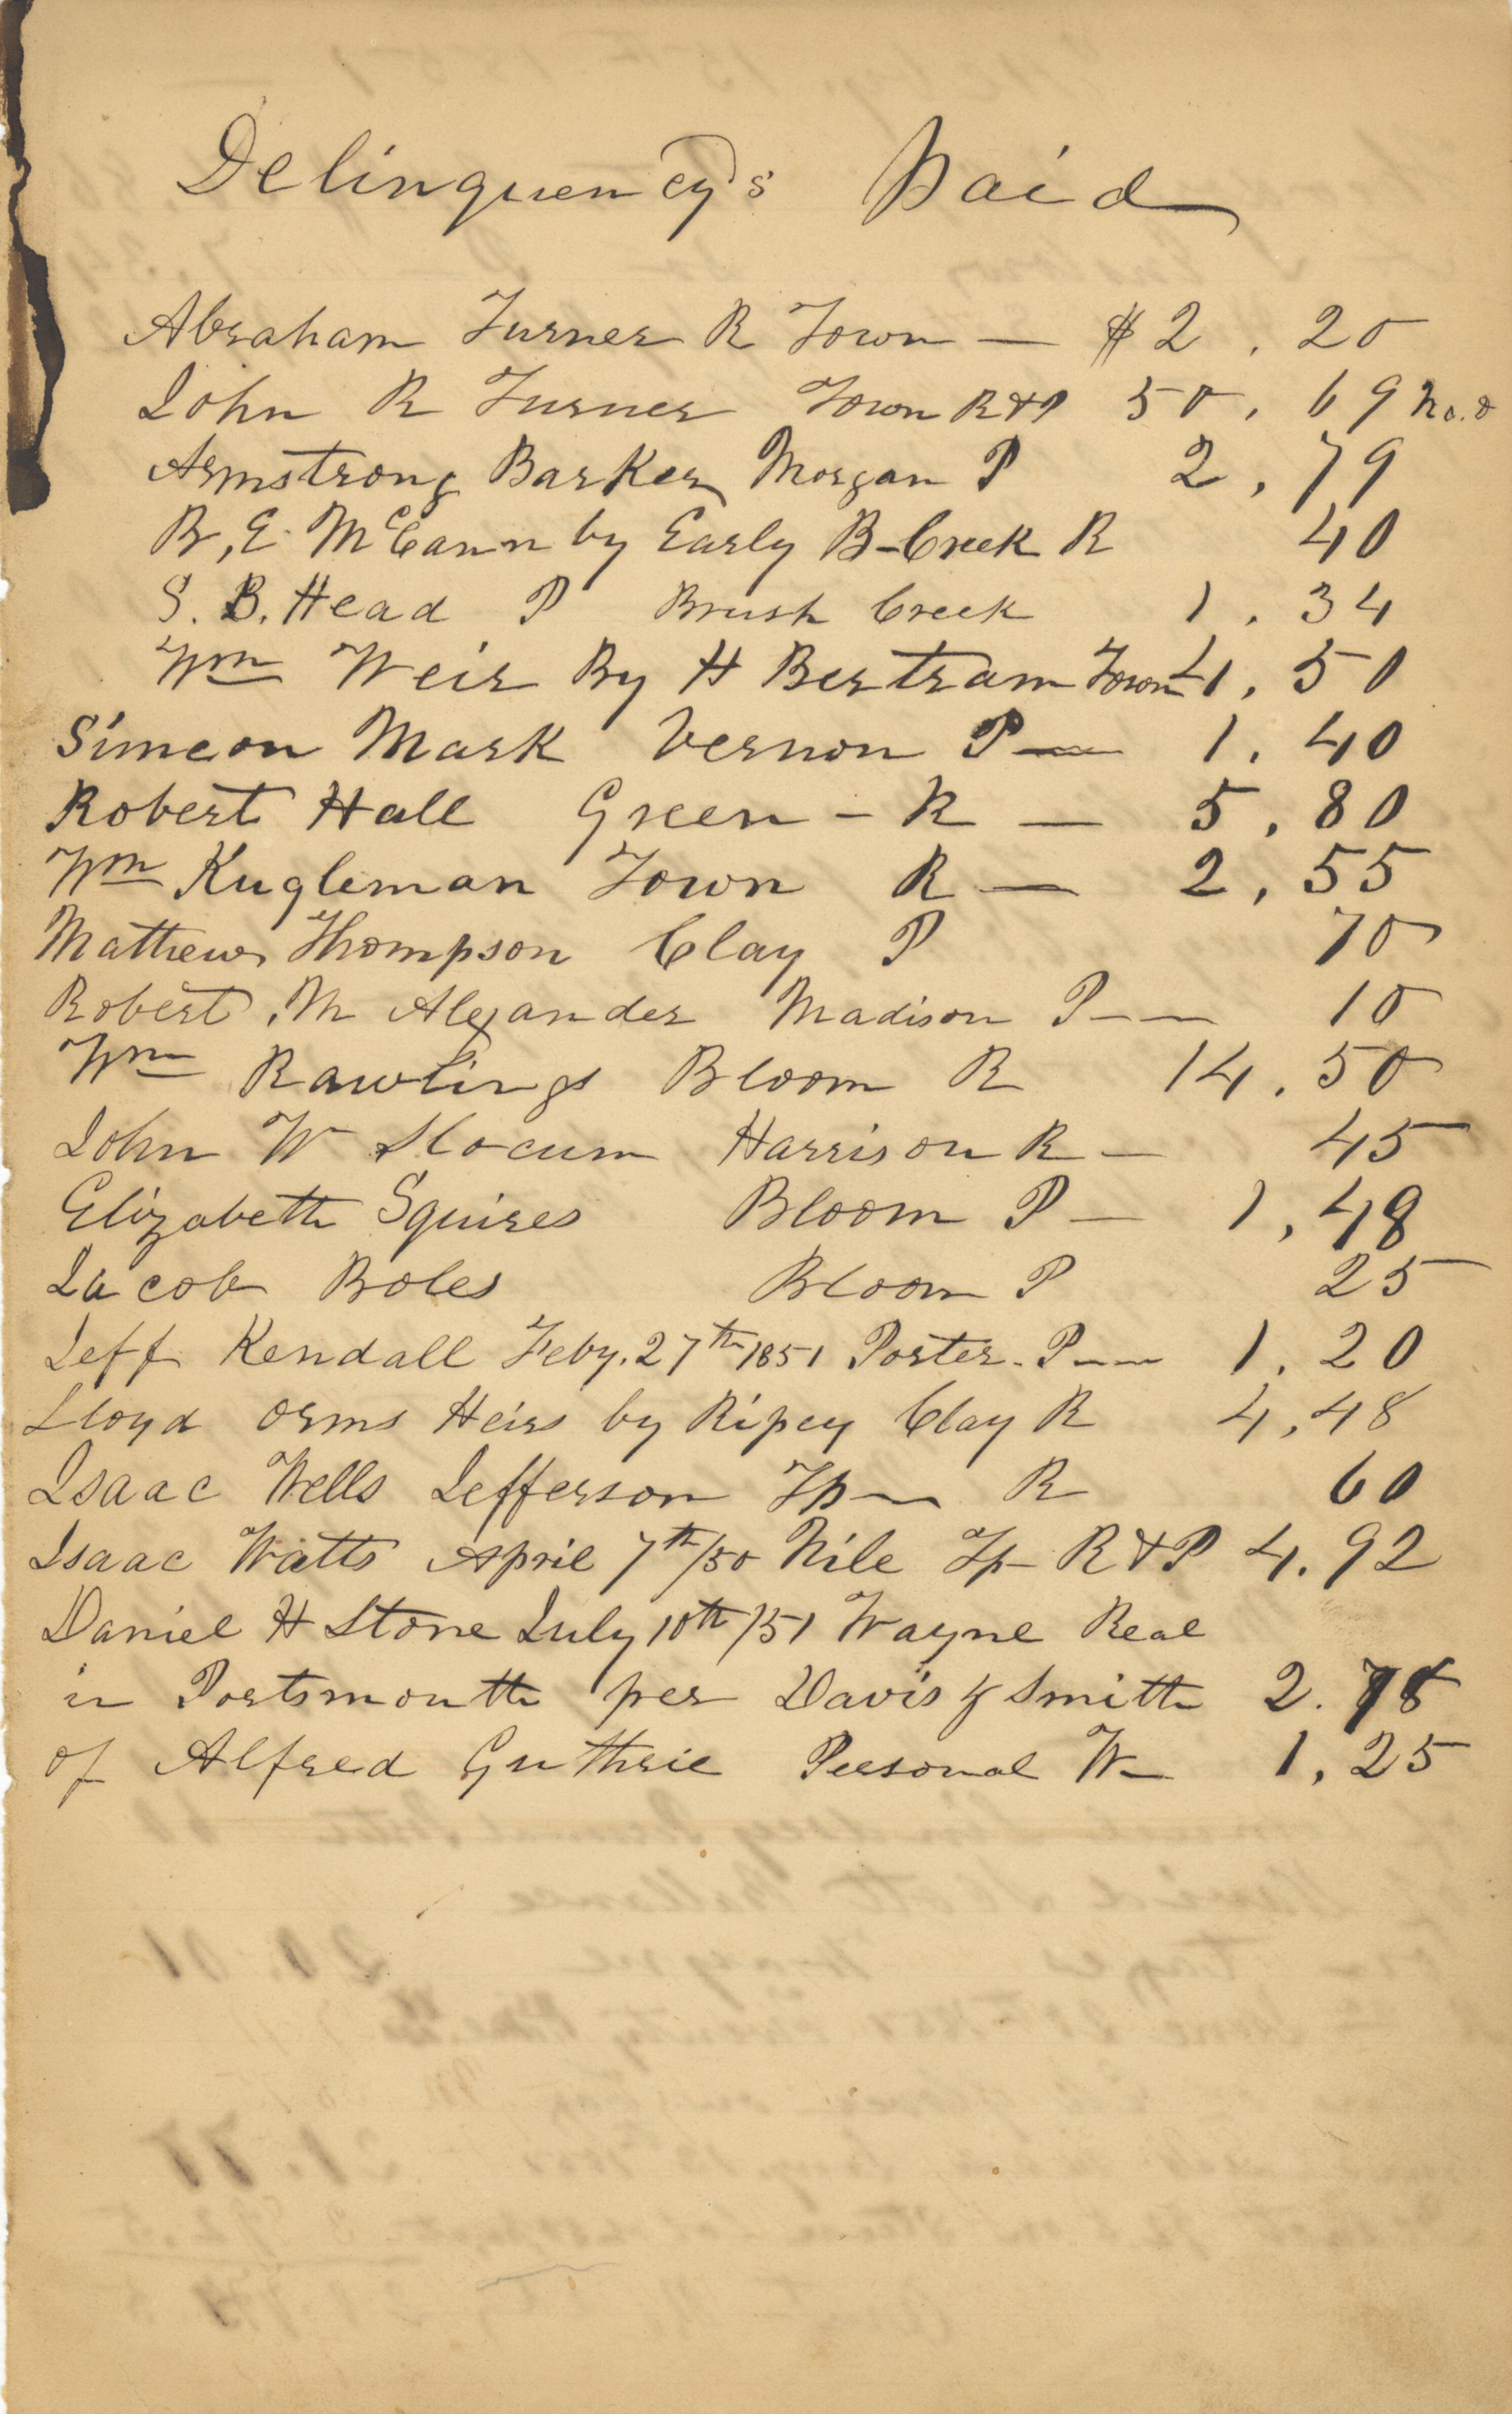 Delinquency's Paid
Abraham Turner R Town — $2.20
John R Turner Town R&P 50.69
Armstrong Barker Morgan P 2.79
B. E. McCann by Early B-Creek R 40
S. B. Head P Brush Creek 1.34
Wm Weir By H Bertram Town 1.50
Simeon Mark Vernon P — 1.40
Robert Hall Green - R — 5.80
Wm Kugleman Town R — 2,55
Mathews Thompson Clay P 70
Robert M Alexander Madison P — 10
Wm Rawlings Bloom R 14.50
John W Slocum Harrison R — 45
Elizabeth Squires Bloom P — 1,48
Jacob Boles Bloom P 25
Jeff Kendall Feby. 27th 1851 Porter. P — 1.20
Lloyd Orms Heirs by Ripey Clay R 4,48
Isaac Wells Jefferson Tp — R 60
Isaac Watts April 7th/50 Nile Tp R&P 4.92
Daniel H Stone July 10th/51 Wayne Real
in Portsmouth per Davis & Smith 2.
of Alfred Guthrie Personal W — 1,25